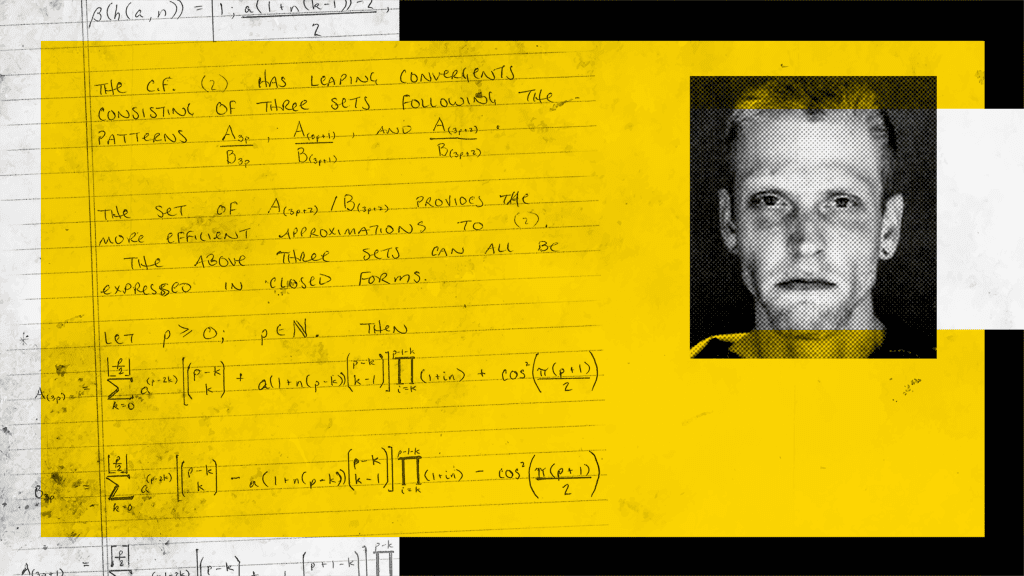 β(h(a,n)) = | 1; a(1+n(k-1))-2 / 2
THE C.F. (2) HAS LEAPING CONVERGENTS
CONSISTING OF THREE SETS FOLLOWING THE
PATTERNS A_{3p}/B_{3p} , A_{(3p+1)}/B_{(3p+1)} , AND A_{(3p+2)}/B_{(3p+2)} .
THE SET OF A_{(3p+2)} / B_{(3p+2)} PROVIDES THE
MORE EFFICIENT APPROXIMATIONS TO (2).
THE ABOVE THREE SETS CAN ALL BE
EXPRESSED IN CLOSED FORMS.
LET p ≥ 0; p ∈ ℕ. THEN
A_{(3p)} = ∑_{k=0}^{⌊p/2⌋} a^{(p-2k)} [ (p-k k) + a(1+n(p-k)) (p-k k-1) ] ∏_{i=k}^{p-1-k} (1+in) + cos²(π(p+1)/2)
B_{3p} = ∑_{k=0}^{⌊p/2⌋} a^{(p+2k)} [ (p-k k) - a(1+n(p-k)) (p-k k-1) ] ∏_{i=k}^{p-1-k} (1+in) - cos²(π(p+1)/2)
A_{(3p+1)} = ⌊p/2⌋ (p-k (p+1-k p-k